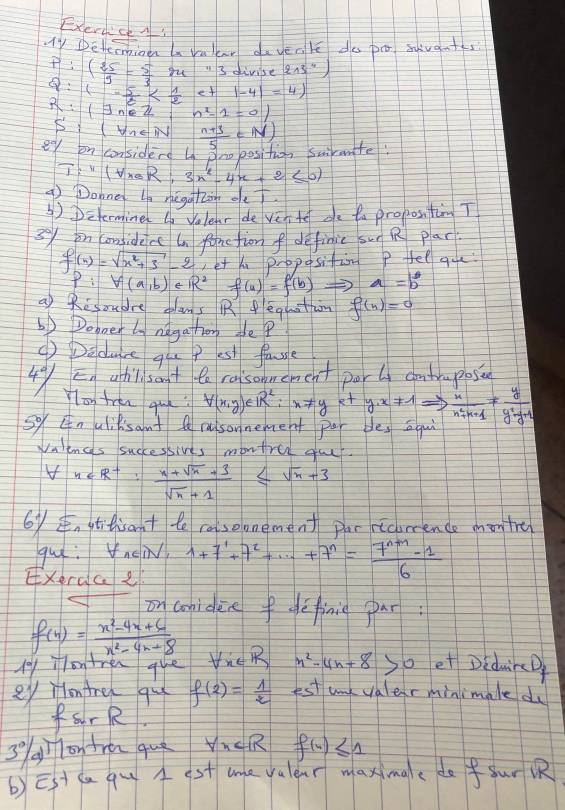 Exercice 1:
1°/ Déterminer la valeur de vérité des pro. suivantes:
P : ( 25/9 = 5/3 ou "3 divise 213" )
Q : ( -5/2 < 1/2 et |-4| = 4 )
R : ( ∃n∈Z ; n²-1 = 0 )
S : ( ∀n∈IN (n+3)/5 ∈ IN )
2°/ on considère la proposition suivante :
T : " ( ∀x∈R, 3x² - 4x + 2 ≤ 0 )
a) Donner la négation de T.
b) Déterminer la valeur de vérité de la proposition T.
3°/ on considère la fonction f définie sur R par:
f(x) = √(x²+3) - 2, et la proposition P tel que:
P : ∀(a,b) ∈ R² f(a) = f(b) ⟹ a = b
a) Résoudre dans R l'équation f(x) = 0
b) Donner la négation de P.
c) Déduire que P est fausse.
4°/ En utilisant le raisonnement par la contraposée
Montrer que : ∀(x,y)∈R² : x≠y et y.x≠1 ⟹ x/(x²+x+1) ≠ y/(y²+y+1)
5°/ En utilisant le raisonnement par des équi
valences successives montrer que:
∀ x∈R⁺ : (x + √x + 3)/(√x + 1) ≤ √x + 3
6°/ En utilisant le raisonnement par récurrence montrer
que: ∀n∈IN, 1 + 7¹ + 7² + ... + 7ⁿ = (7ⁿ⁺¹ - 1)/6
Exercice 2:
on conidère f définie par :
f(x) = (x² - 4x + 6)/(x² - 4x + 8)
1°/ Montrer que ∀x∈R x² - 4x + 8 > 0 et Déduire Df
2°/ Montrer que f(2) = 1/2 est une valeur minimale de
f sur R.
3°/ a) Montrer que ∀x∈R f(x) ≤ 1
b) Est ce que 1 est une valeur maximale de f sur R.